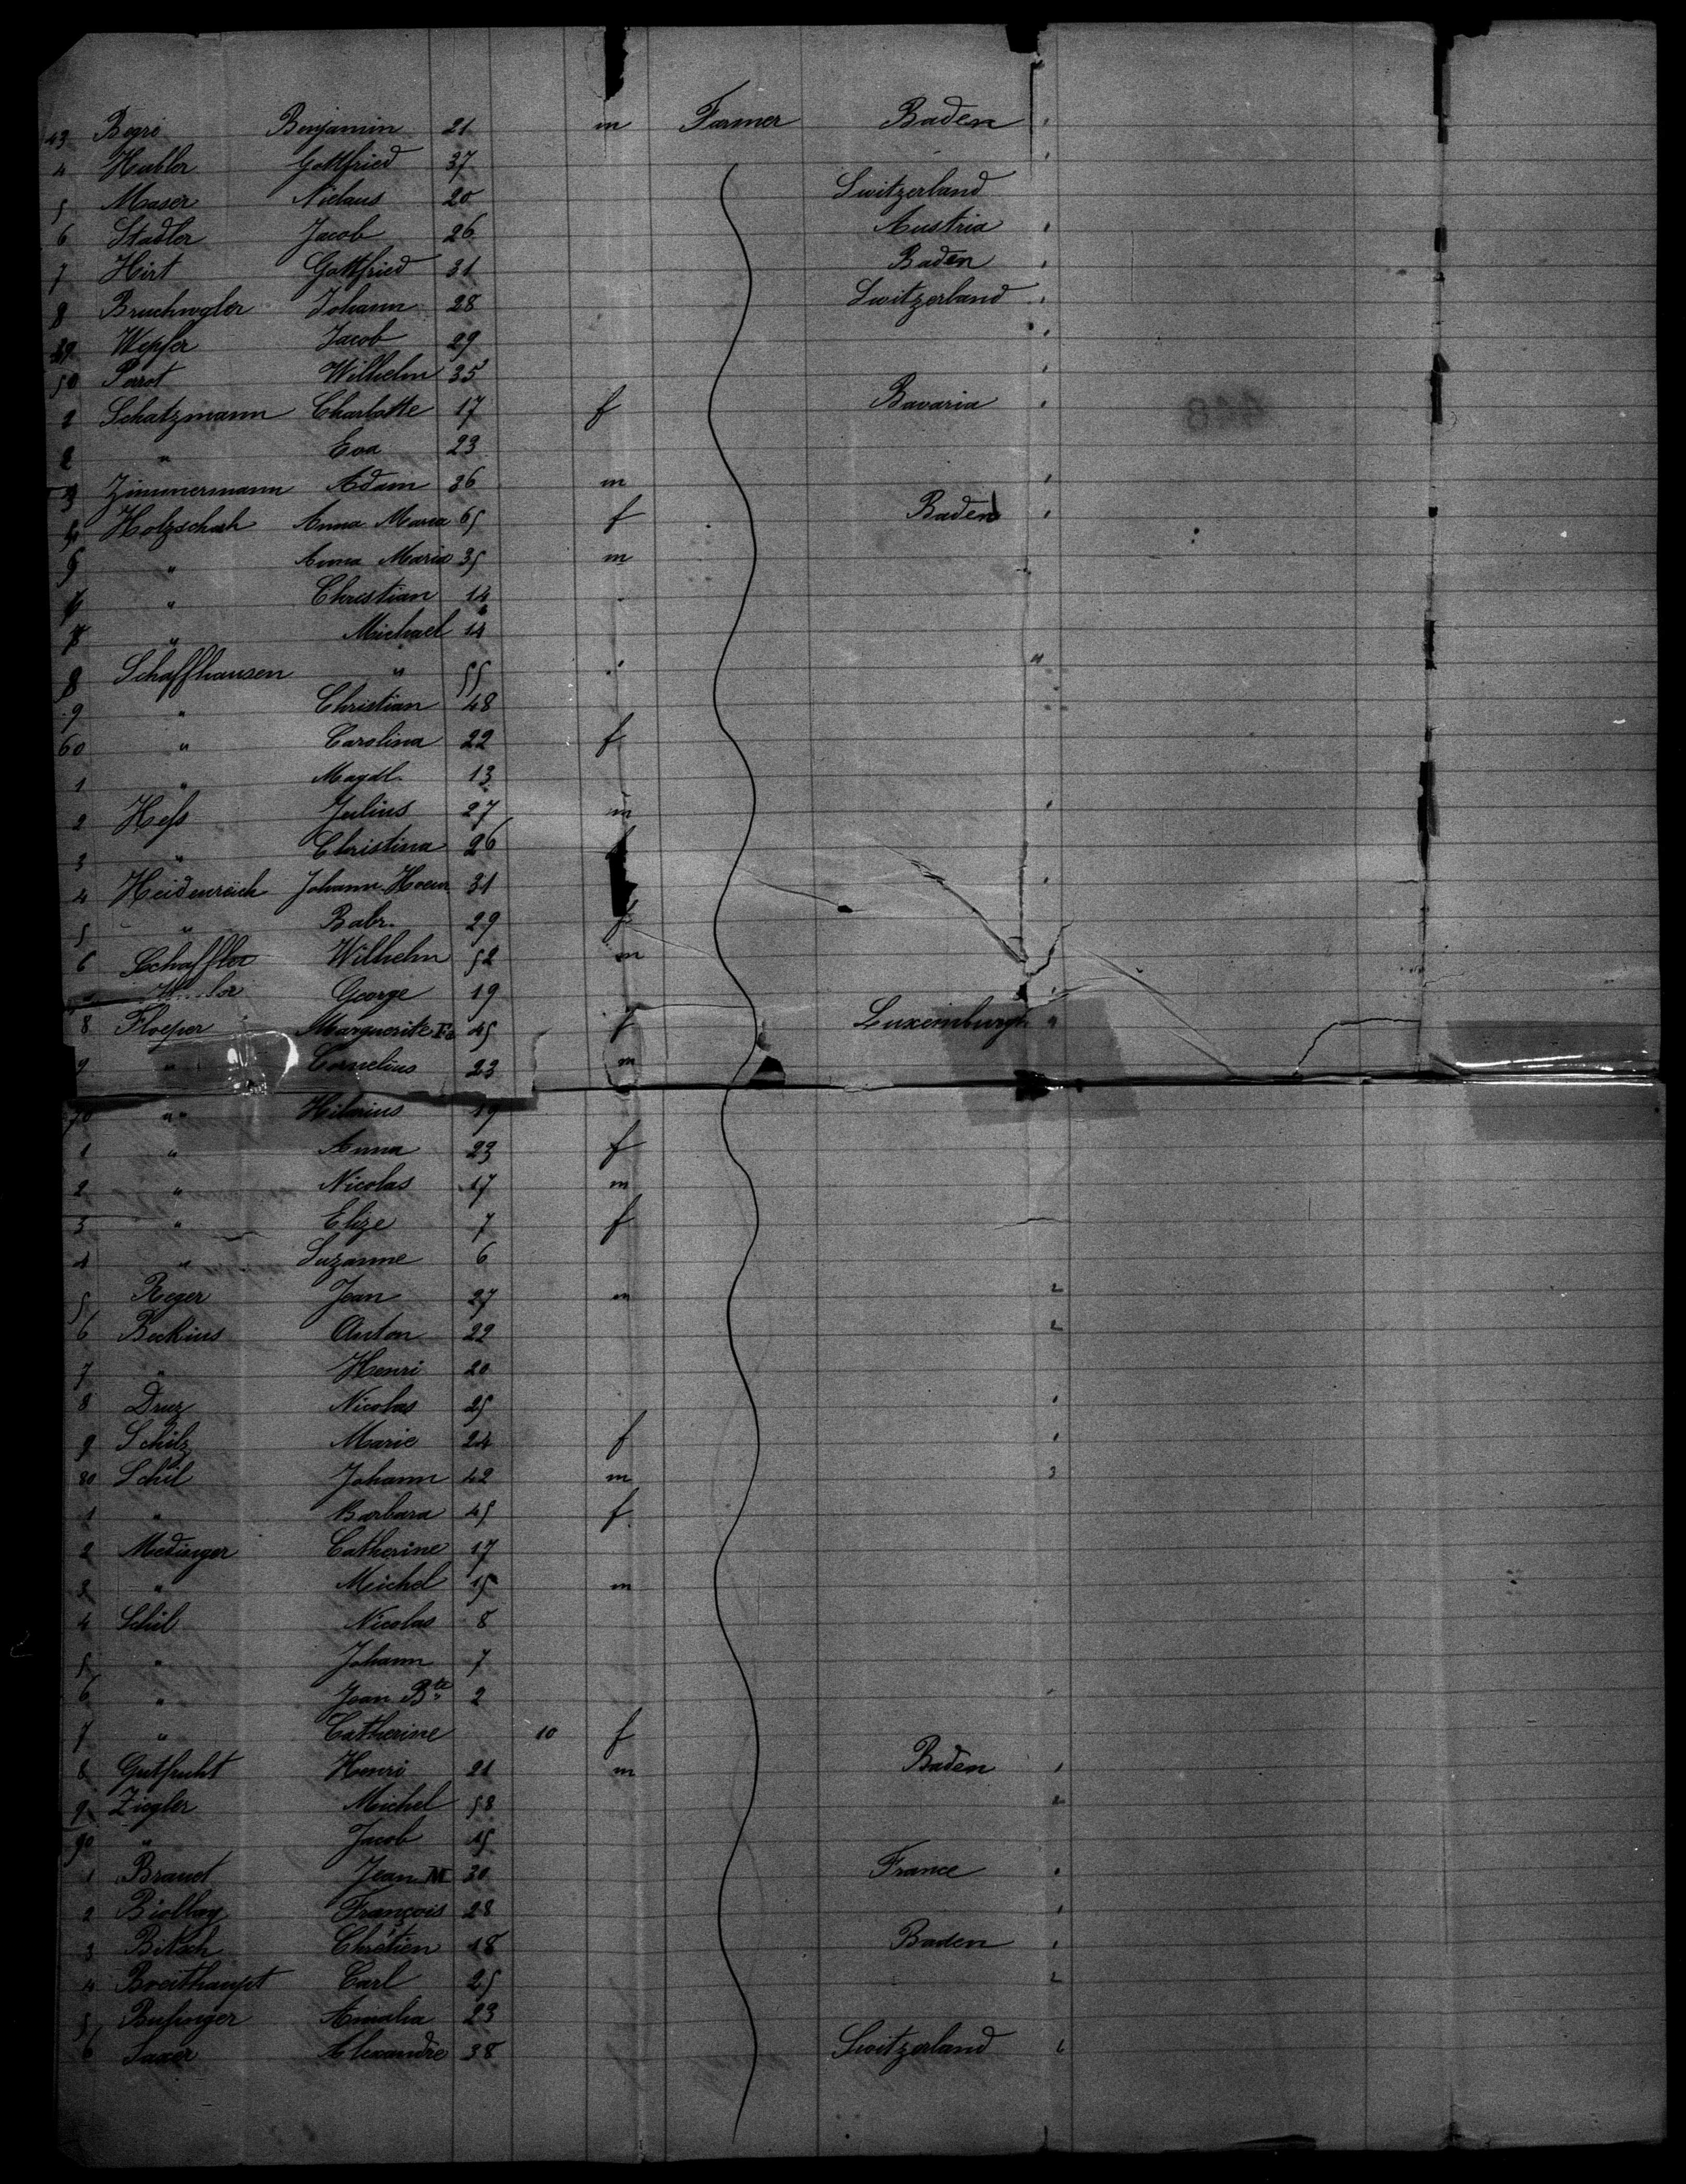 43 Begré Benjamin 21 m Farmer Baden "
4 Hubler Gottfried 37 "
5 Maser Niclaus 20 Switzerland
6 Stadler Jacob 26 Austria "
7 Hirt Gottfried 31 Baden "
8 Bruchwgler Johann 28 Switzerland "
49 Wepfer Jacob 29 "
50 Perrot Wilhelm 35 "
1 Schatzmann Charlotte 17 f Bavaria "
2 " Eva 23
3 Zimmermann Adam 36 m "
4 Holzschuh Anna Maria 65 f Baden "
5 " Anna Maria 35 m
6 " Christian 14
7 " Michael 14
8 Schaffhausen " 55 " "
9 " Christian 48
60 " Carolina 22 f
1 " Magdl. 13
2 Hess Julius 27 m "
3 " Christina 26
4 Heidenreich Johann 31 "
5 " Babr. 29 f
6 Schaffler Wilhelm 52 m
George 19 "
8 Floeper Marguerite 45 f Luxemburgh "
9 " Cornelius 23 m
70 " Hilarius 19
1 " Anna 23 f
2 " Nicolas 17 m
3 " Elize 7 f
4 " Suzanne 6
5 Reger Jean 27 m 2
6 Beckius Anton 22 2
7 " Henri 20
8 Druz Nicolas 25 "
9 Schilz Marie 24 f "
80 Schil Johann 42 m 3
1 " Barbara 45 f
2 Medinger Catherine 17
3 " Michel 15 m
4 Schil Nicolas 8
5 " Johann 7
6 " Jean Bte 2
7 " Catherine 10 f
8 Gutfrucht Henri 21 m Baden "
9 Ziegler Michel 58 2
90 " Jacob 15
1 Braud Jean M 30 France "
2 Biollay François 28 "
3 Bitsch Chrétien 18 Baden "
4 Breithaupt Carl 25 2
5 Businger Amalia 23
6 Saxer Alexandre 38 Switzerland